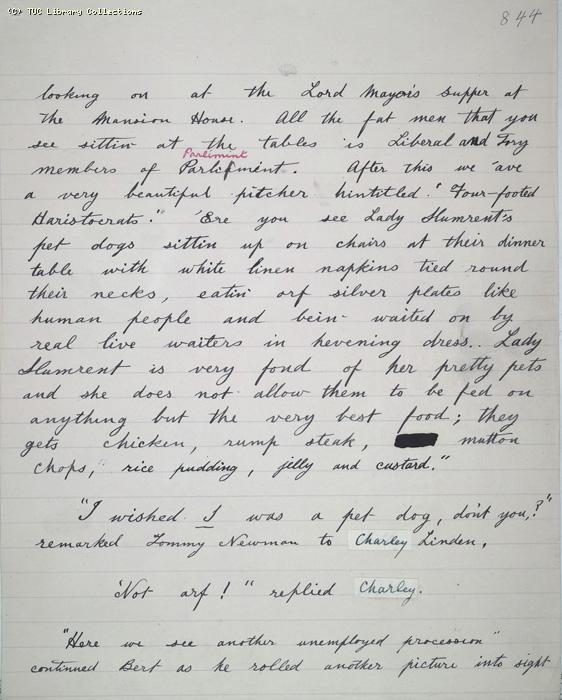 (C) TUC Library Collections
844
looking on at the Lord Mayor's Supper at
the Mansion House. All the fat men that you
see sittin at the tables is Liberal and Tory
Parlimint
members of Parliment. After this we 'ave
a very beautiful pitcher hintitled: "Four-footed
Haristocrats." 'Ere you see Lady Slumrent's
pet dogs sittin up on chairs at their dinner
table with white linen napkins tied round
their necks, eatin' orf silver plates like
human people and bein' waited on by
real live waiters in hevening dress.. Lady
Slumrent is very fond of her pretty pets
and she does not allow them to be fed on
anything but the very best food; they
gets chicken, rump steak, mutton
chops, rice pudding, jelly and custard."
"I wished I was a pet dog, don't you,?"
remarked Tommy Newman to Charley Linden.
'Not arf!" replied Charley.
"Here we see another unemployed procession"
continued Bert as he rolled another picture into sight